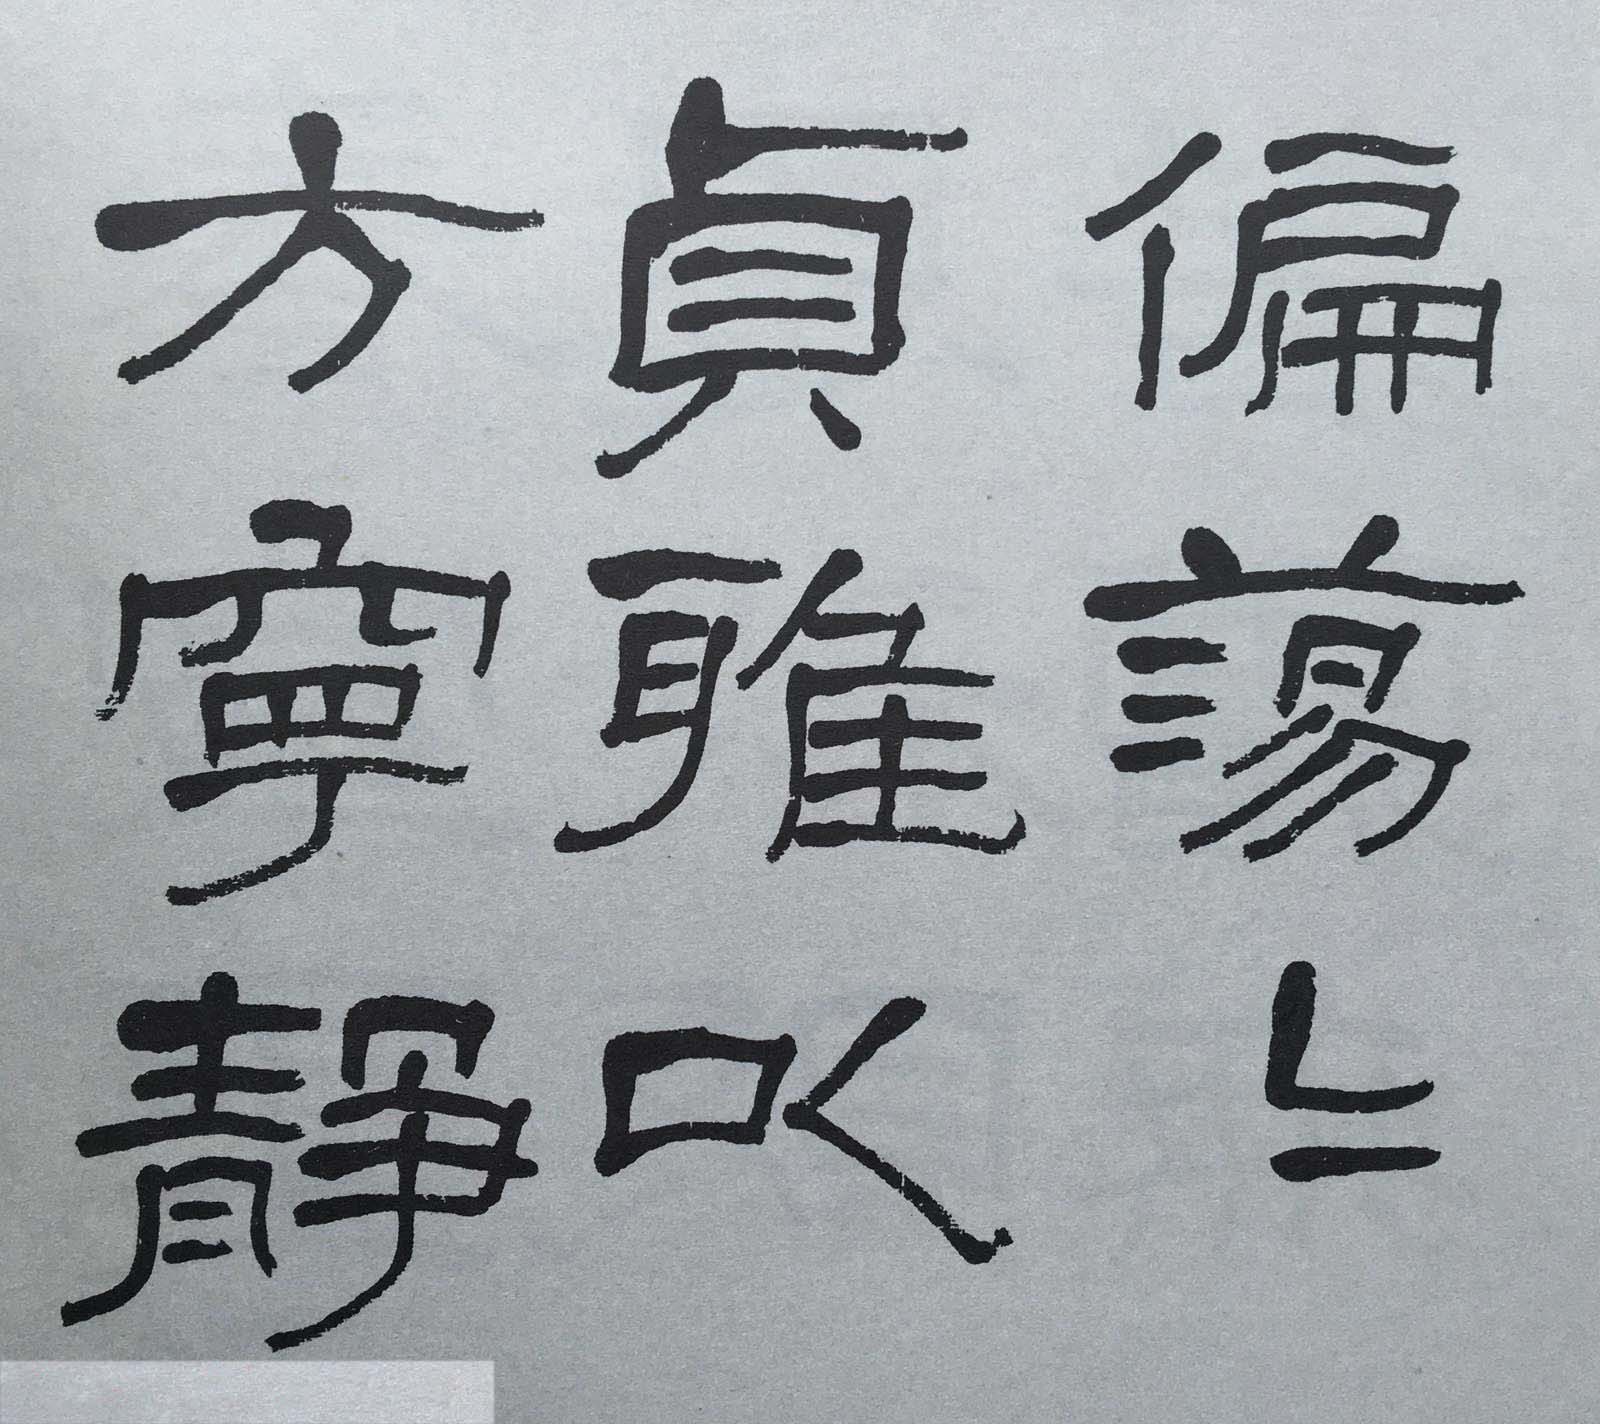 偏蕩〻
貞雅以
方寧靜